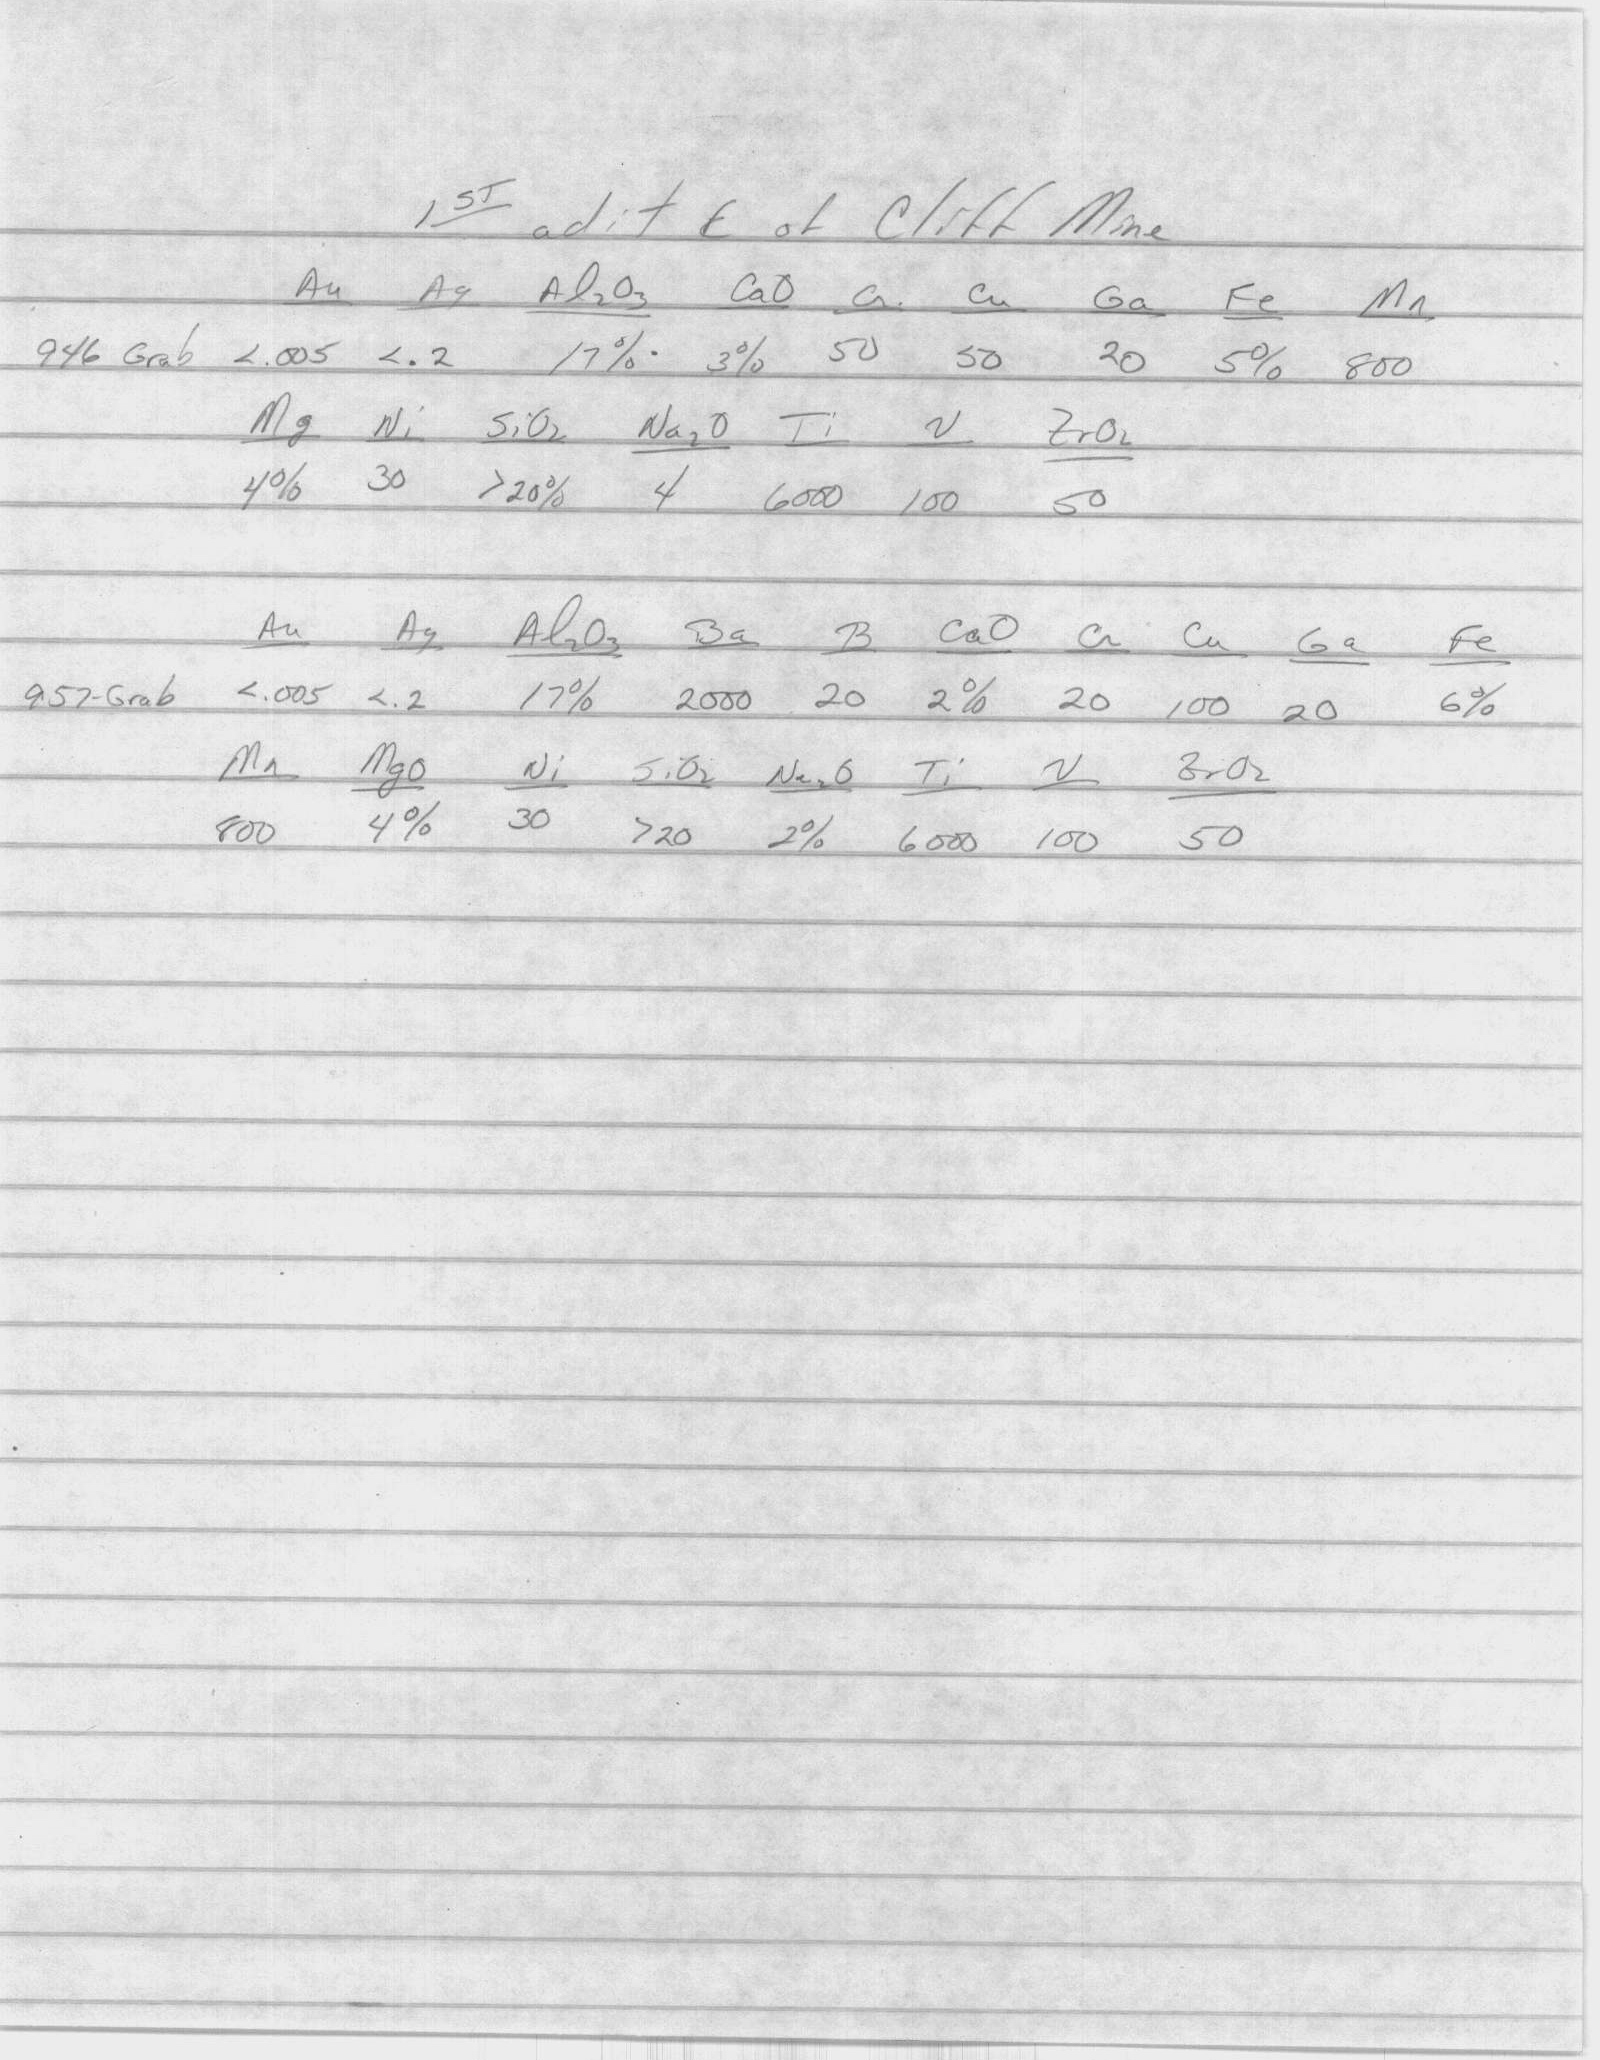 1ST adit E of Cliff Mine
Au Ag Al2O3 CaO Cr Cu Ga Fe Mn
946 Grab <.005 <.2 17% 3% 50 50 20 5% 800
Mg Ni SiO2 Na2O Ti V ZrO2
4% 30 >20% 4 6000 100 50
Au Ag Al2O3 Ba B CaO Cr Cu Ga Fe
957-Grab <.005 <.2 17% 2000 20 2% 20 100 20 6%
Mn MgO Ni SiO2 Na2O Ti V ZrO2
800 4% 30 >20 2% 6000 100 50